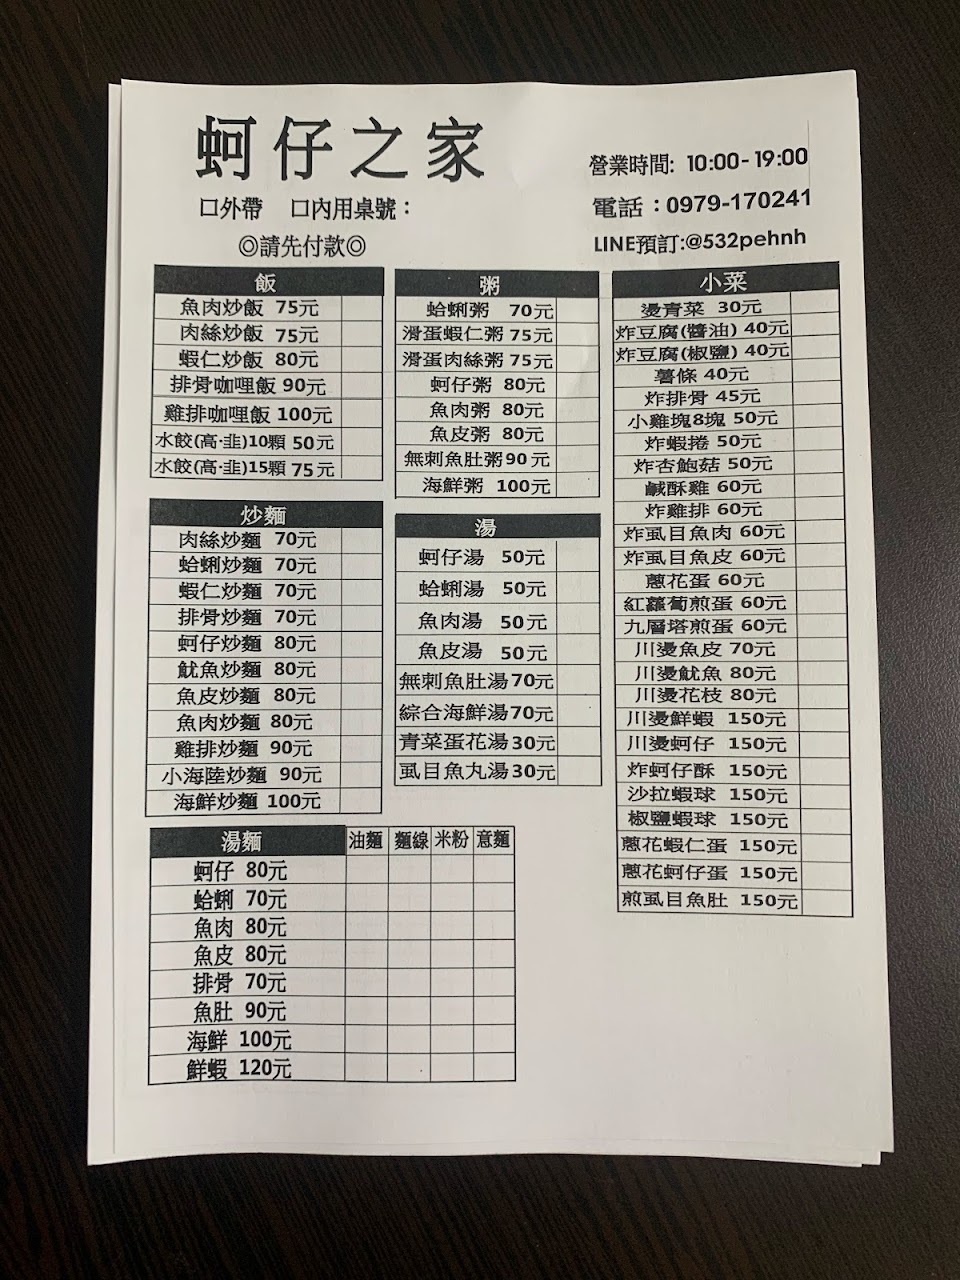 蚵仔之家
口外帶 口內用桌號：
◎請先付款◎
營業時間: 10:00-19:00
電話：0979-170241
LINE預訂:@532pehnh
飯
魚肉炒飯 75元
肉絲炒飯 75元
蝦仁炒飯 80元
排骨咖哩飯 90元
雞排咖哩飯 100元
水餃(高·韭)10顆 50元
水餃(高·韭)15顆 75元
炒麵
肉絲炒麵 70元
蛤蜊炒麵 70元
蝦仁炒麵 70元
排骨炒麵 70元
蚵仔炒麵 80元
魷魚炒麵 80元
魚皮炒麵 80元
魚肉炒麵 80元
雞排炒麵 90元
小海陸炒麵 90元
海鮮炒麵 100元
粥
蛤蜊粥 70元
滑蛋蝦仁粥 75元
滑蛋肉絲粥 75元
蚵仔粥 80元
魚肉粥 80元
魚皮粥 80元
無刺魚肚粥 90元
海鮮粥 100元
湯
蚵仔湯 50元
蛤蜊湯 50元
魚肉湯 50元
魚皮湯 50元
無刺魚肚湯 70元
綜合海鮮湯 70元
青菜蛋花湯 30元
虱目魚丸湯 30元
小菜
燙青菜 30元
炸豆腐(醬油) 40元
炸豆腐(椒鹽) 40元
薯條 40元
炸排骨 45元
小雞塊8塊 50元
炸蝦捲 50元
炸杏鮑菇 50元
鹹酥雞 60元
炸雞排 60元
炸虱目魚肉 60元
炸虱目魚皮 60元
蔥花蛋 60元
紅蘿蔔煎蛋 60元
九層塔煎蛋 60元
川燙魚皮 70元
川燙魷魚 80元
川燙花枝 80元
川燙鮮蝦 150元
川燙蚵仔 150元
炸蚵仔酥 150元
沙拉蝦球 150元
椒鹽蝦球 150元
蔥花蝦仁蛋 150元
蔥花蚵仔蛋 150元
煎虱目魚肚 150元
湯麵 油麵 麵線 米粉 意麵
蚵仔 80元
蛤蜊 70元
魚肉 80元
魚皮 80元
排骨 70元
魚肚 90元
海鮮 100元
鮮蝦 120元